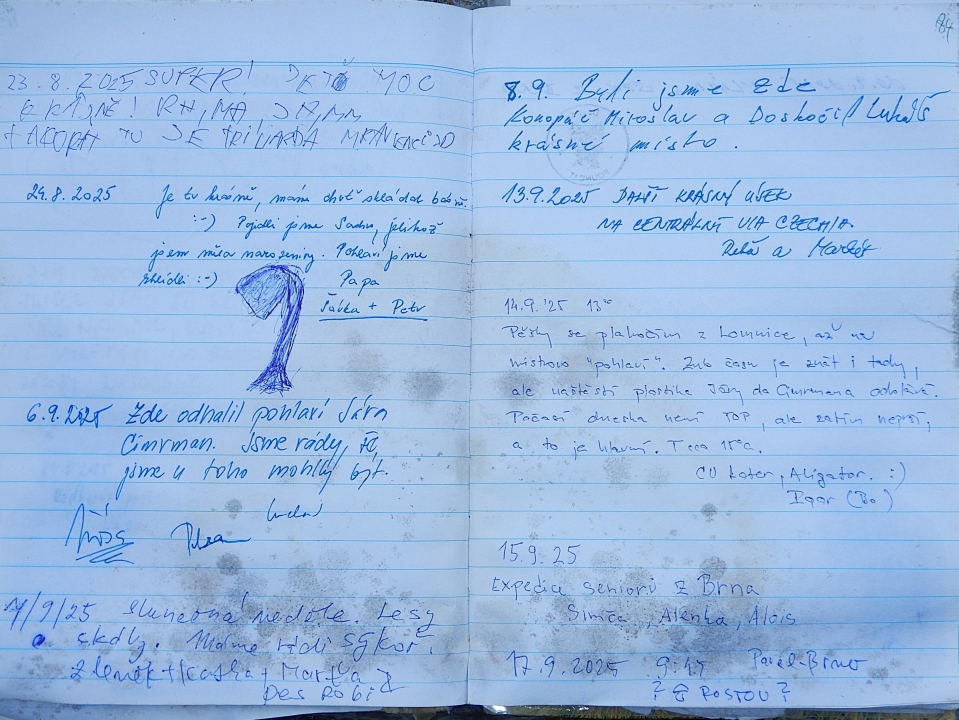 23.8.2025 SUPER! JE TO MOC
KRÁSNĚ!
TU JE TRILIARDA
24.8.2025 Je tu krásně, máme chuť skládat básně.
:-) Pojedli jsme Sacher, jelikož
jsem měla narozeniny. Pohlaví jsme
shlédli :-) Papa
Šárka + Petr
6.9.2025 Zde odhalil pohlaví Jára
Cimrman. Jsme rády, že
jsme u toho mohly být.
7/9/25 Slunečná neděle. Lesy
skály. Máme rádi sýkor.
Zdeněk + + Martina
pes Robi
84
8.9. Byli jsme zde
Konopáč Miroslav a Doskočil Lukáš
krásné místo.
13.9.2025 DALŠÍ KRÁSNÝ ÚSEK
NA CENTRÁLNÍ VIA CZECHIA.
a Marek
14.9.'25 13°°
Pěšky se plahočím z Lomnice, až na
místo "pohlaví". Zub času je znát i tady,
ale naštěstí plastika Járy da Cimrmana odolává.
Počasí dneska není TOP, ale zatím neprší,
a to je hlavní. T cca 15°C.
CU later, Aligator. :)
Igor (Bo)
15.9.25
Expedice seniorů z Brna
Simča, Alenka, Alois
17.9.2025 9:45 Pavel-Brno
? ROSTOU ?